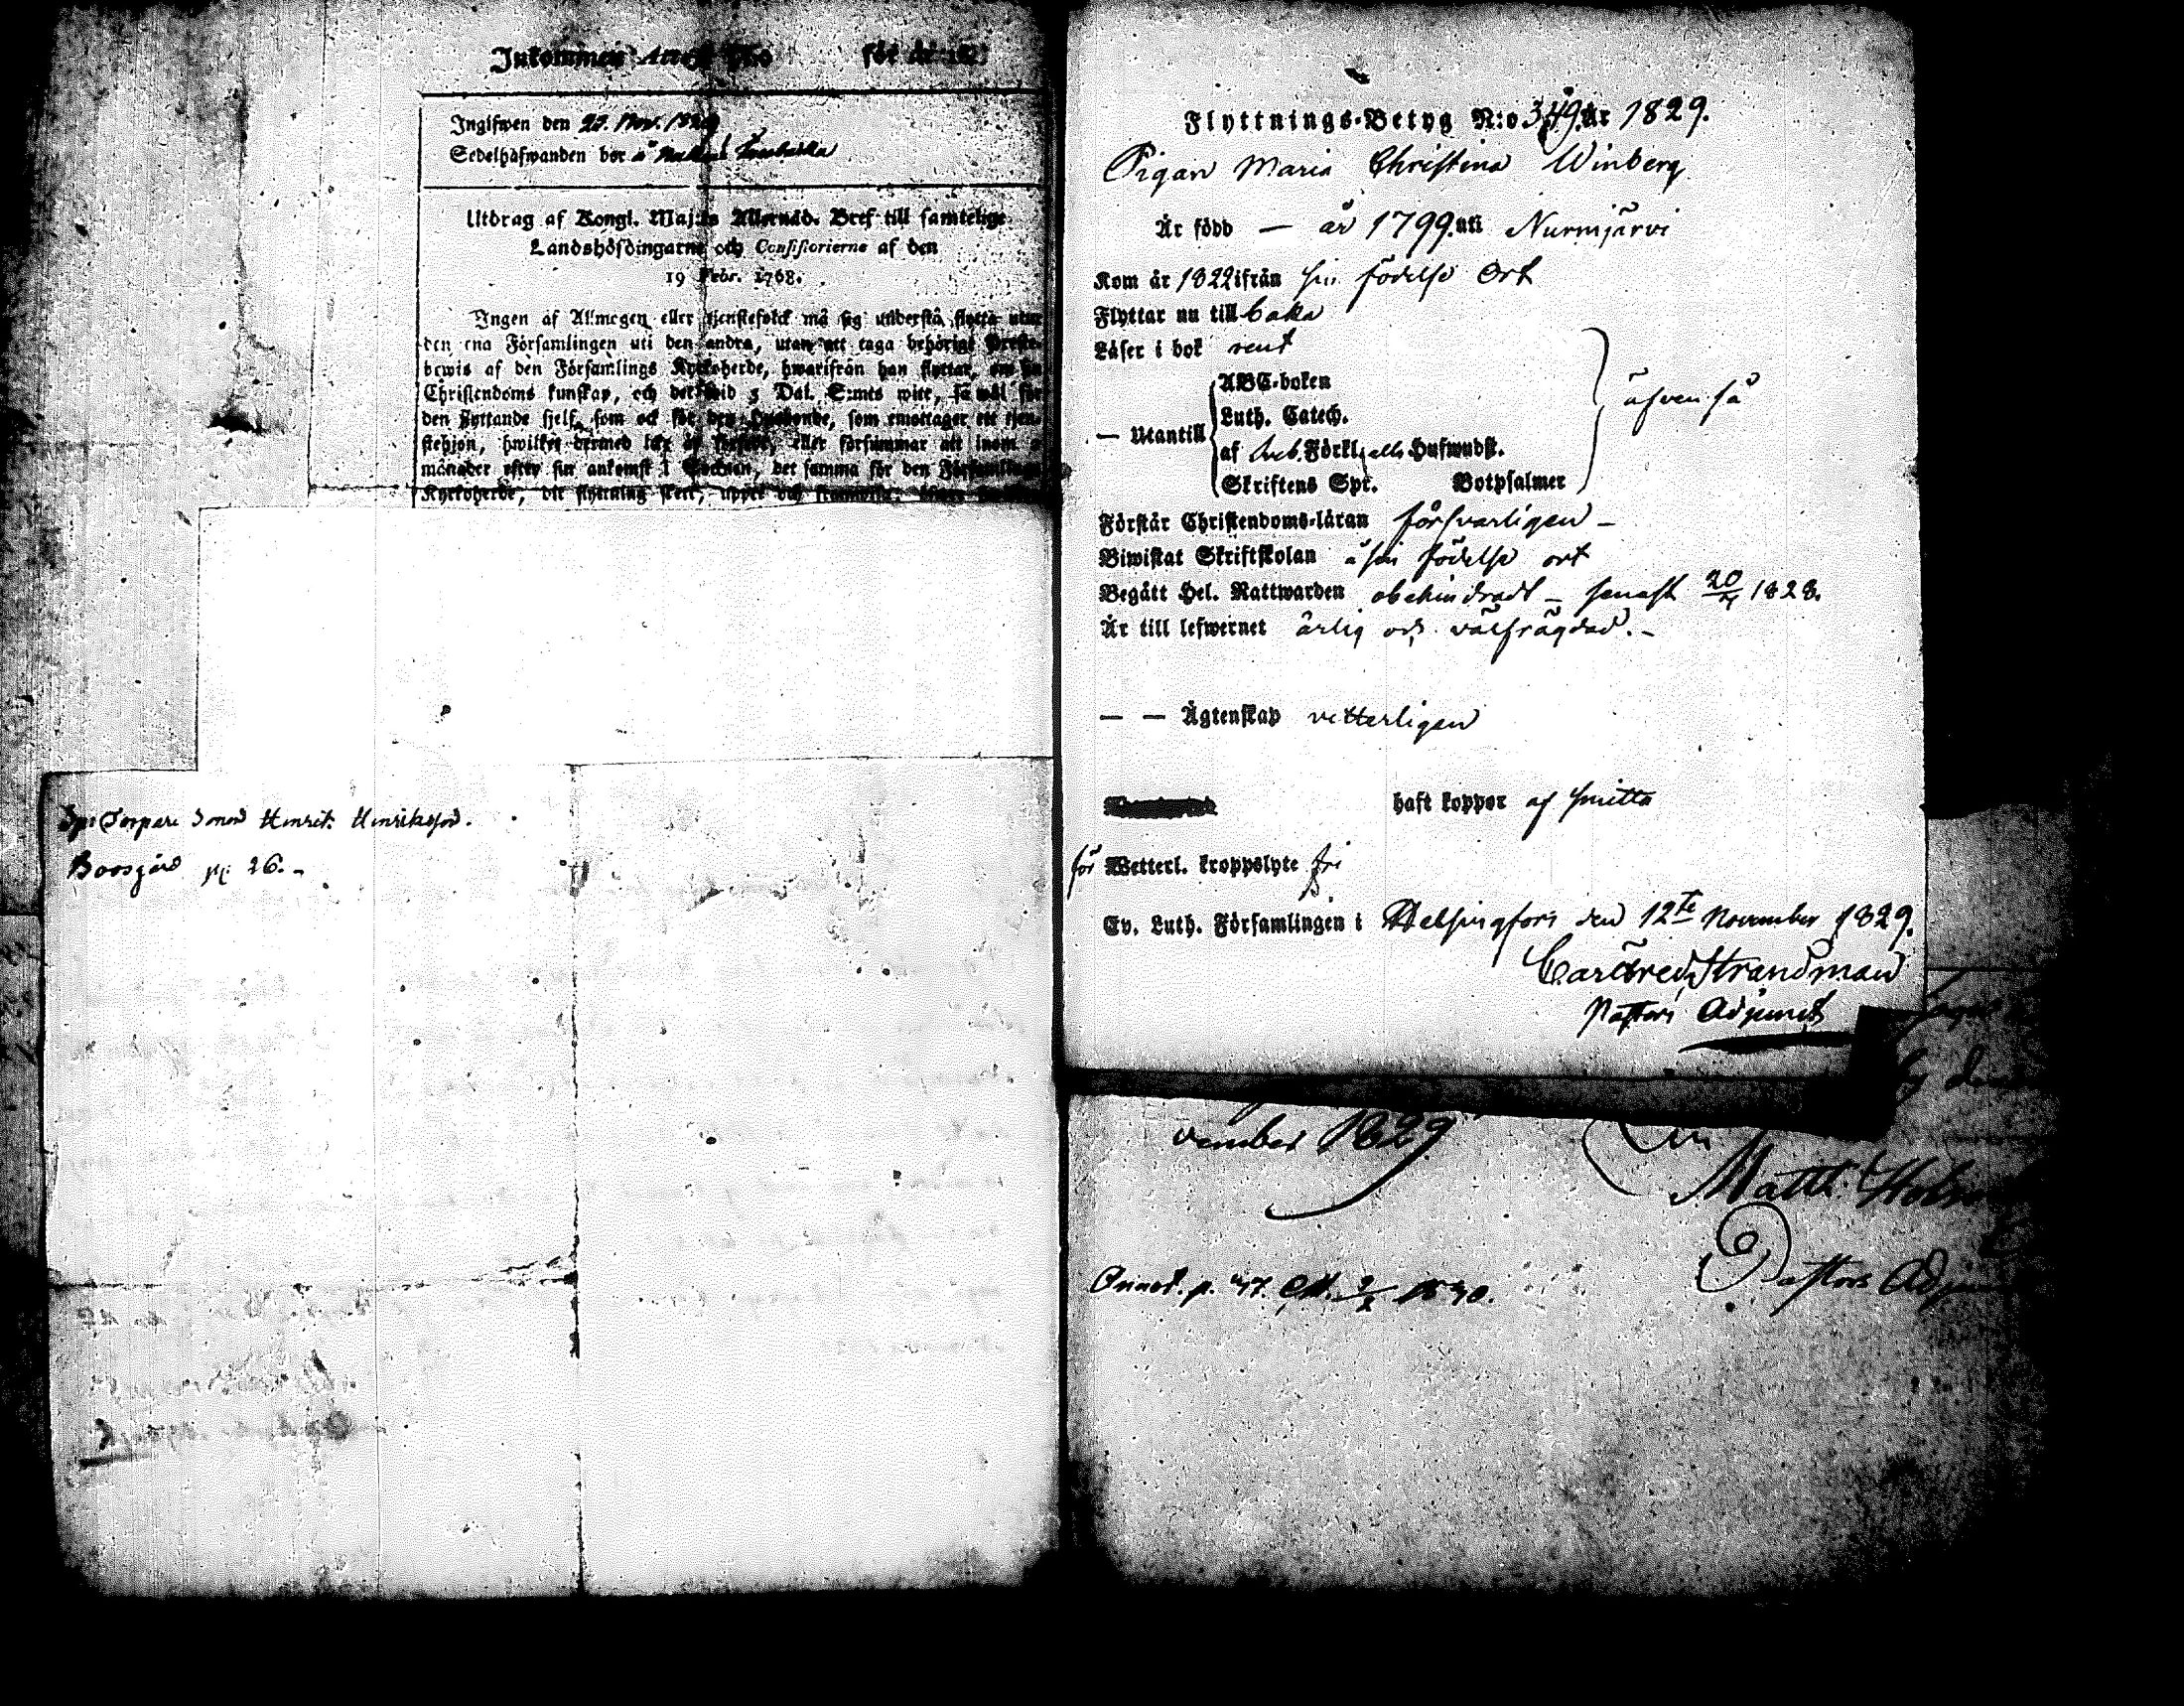 Inkommen Attest N:o för år 182
Ingifwen den 22. Nov. 1829
Sedelhafwanden bor å
Utdrag af Kongl. Maj:ts Allernåd. Bref till samtelige
Landshöfdingarne och Consistorierne af den
19 Febr. 1768.
Ingen af Allmogen eller tjenstefolck må sig understå, flytta utur
den ena Församlingen uti den andra, utan att taga behörigt Preste-
bewis af den Församlings Kyrkoherde, hwarifrån han flyttar, om sin
Christendoms kunskap, och det wid 3 Dal. S:mts wite, så wäl för
den flyttande sjelf, som ock för den Husbonde, som emottager ett tjen-
stehjon, hwilket dermed icke är försedt, eller försummar att inom
månader efter sin ankomst i Socknen, det samma för den Församlings
Kyrkoherde, dit flyttning skett, uppte och
Torpare Sonen Henrik Henriksson.
Boosgård p: 26. -
Flyttnings-Betyg N:o 349. År 1829.
Pigan Maria Christina Winberg
Är född — år 1799. uti Nurmijärvi
Kom år 1822 ifrån sin födelse Ort
Flyttar nu till baka
Läser i bok rent
— Utantill
ABC-boken
Luth. Catech.
af Sveb. Förkl. alla Hufwudst.
Skriftens Spr. Botpsalmer
äfven så
Förstår Christendoms-läran försvarligen -
Biwistat Skriftskolan å sin födelse ort
Begått Hel. Nattwarden obehindradt - senast 20/4 1828.
Är till lefwernet ärlig och välfrägdad. -
— — Ägtenskap vitterligen
haft koppor af smitta
för Wetterl. kroppslyte fri
Ev. Luth. Församlingen i Helsingfors den 12te November 1829.
Carl Fred. Strandman
Pastors Adjunct
vember 1829.
Matth:
Pastors
Annot. p. 47.